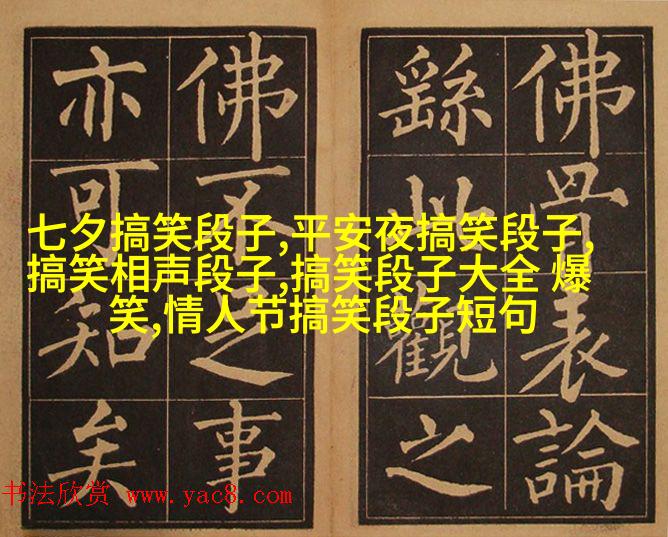 佛骨表論
繇此觀之
佛不足事
亦可知矣
七夕搞笑段子,平安夜搞笑段子,
搞笑相声段子,搞笑段子大全 爆
笑,情人节搞笑段子短句
书法欣赏 www.yac8.com